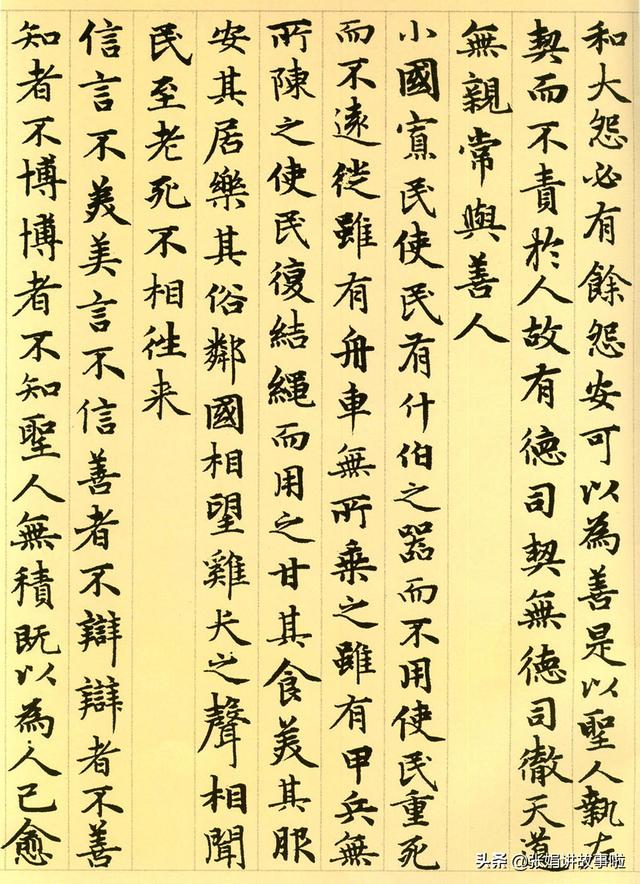 和大怨必有餘怨安可以為善是以聖人執左
契而不責於人故有德司契無德司徹天道
無親常與善人
小國寡民使民有什伯之器而不用使民重死
而不遠徙雖有舟車無所乗之雖有甲兵無
所陳之使民復結繩而用之甘其食美其服
安其居樂其俗鄰國相望雞犬之聲相聞
民至老死不相往来
信言不美美言不信善者不辯辯者不善
知者不博博者不知聖人無積既以為人己愈
头条 @张娟讲故事啦